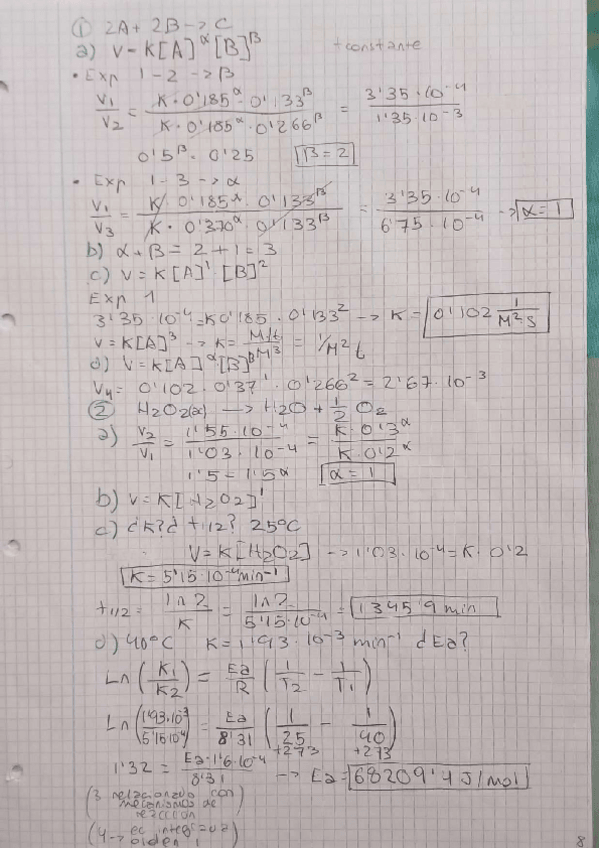 ① 2A + 2B -> C
a) V = K[A]^α [B]^β T constante
• Exp 1-2 -> β
V1/V2 = K · 0'185^α · 0'133^β / K · 0'185^α · 0'266^β = 3'35 · 10^-4 / 1'35 · 10^-3
0'5^β = 0'25 β = 2
• Exp 1-3 -> α
V1/V3 = K · 0'185^α · 0'133^β / K · 0'370^α · 0'133^β = 3'35 · 10^-4 / 6'75 · 10^-4 -> α = 1
b) α + β = 2 + 1 = 3
c) V = K[A]^1 · [B]^2
Exp 1
3'35 · 10^-4 = K 0'185 · 0'133^2 -> K = 0'102 1/M^2 S
V = K[A]^3 -> K = M/t / M^3 = 1/M^2 t
d) V = K[A]^α [B]^β
V4 = 0'102 · 0'37^1 · 0'266^2 = 2'67 · 10^-3
② H2O2(ac) -> H2O + 1/2 O2
a) V2/V1 = 1'55 · 10^-4 / 1'03 · 10^-4 = K · 0'3^α / K · 0'2^α
1'5 = 1'5^α α = 1
b) V = K[H2O2]^1
c) ¿K? ¿t1/2? 25ºC
V = K[H2O2] -> 1'03 · 10^-4 = K · 0'2
K = 5'15 · 10^-4 min^-1
t1/2 = ln 2 / K = ln 2 / 5'15 · 10^-4 = 1345'9 min
d) 40ºC K = 1'93 · 10^-3 min^-1 ¿Ea?
Ln (K1/K2) = Ea/R (1/T2 - 1/T1)
Ln (1'93·10^-3 / 5'15·10^-4) = Ea/8'31 (1/25+273 - 1/40+273)
1'32 = Ea · 1'6 · 10^-4 / 8'31 -> Ea = 68209'4 J/mol
(3 relacionado con
mecanismo de
reacción)
(4 -> ec integrada
orden 1)
8